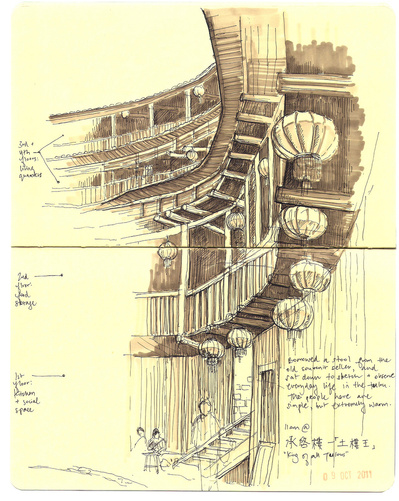 3rd +
4th
floors:
living
quarters
2nd
floor:
food
storage
1st
floor:
kitchen
+ social
space
Borrowed a stool from the
old souvenir seller, and
sat down to sketch + observe
everyday life in the tulou.
The people here are
simple, but extremely warm.
11am @
承啓樓-「土樓王」
"King of all Tulous"
09 OCT 2011